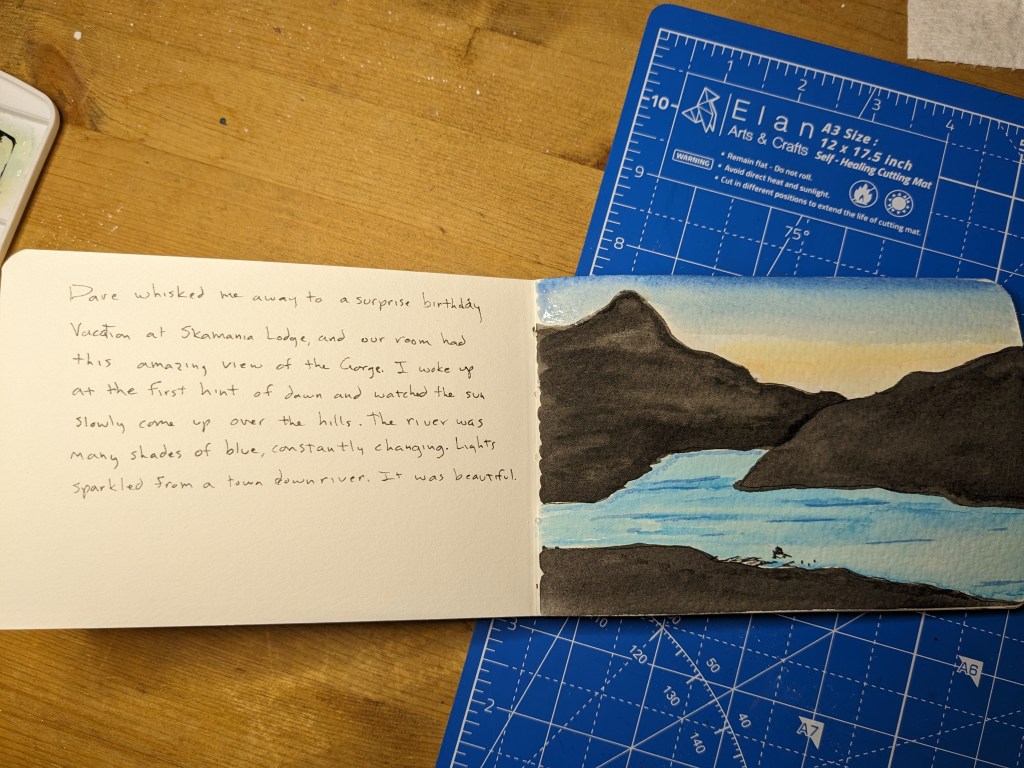 Dave whisked me away to a surprise birthday
Vacation at Skamania Lodge, and our room had
this amazing view of the Gorge. I woke up
at the first hint of dawn and watched the sun
slowly come up over the hills. The river was
many shades of blue, constantly changing. Lights
sparkled from a town downriver. It was beautiful.
1
2
3
4
5
10
9
8
Elan
Arts & Crafts
A3 Size :
12 x 17.5 inch
Self - Healing Cutting Mat
WARNING
• Remain flat - Do not roll.
• Avoid direct heat and sunlight.
• Cut in different positions to extend the life of cutting mat.
75°
3
2
120
130
140
50
40
A6
A7